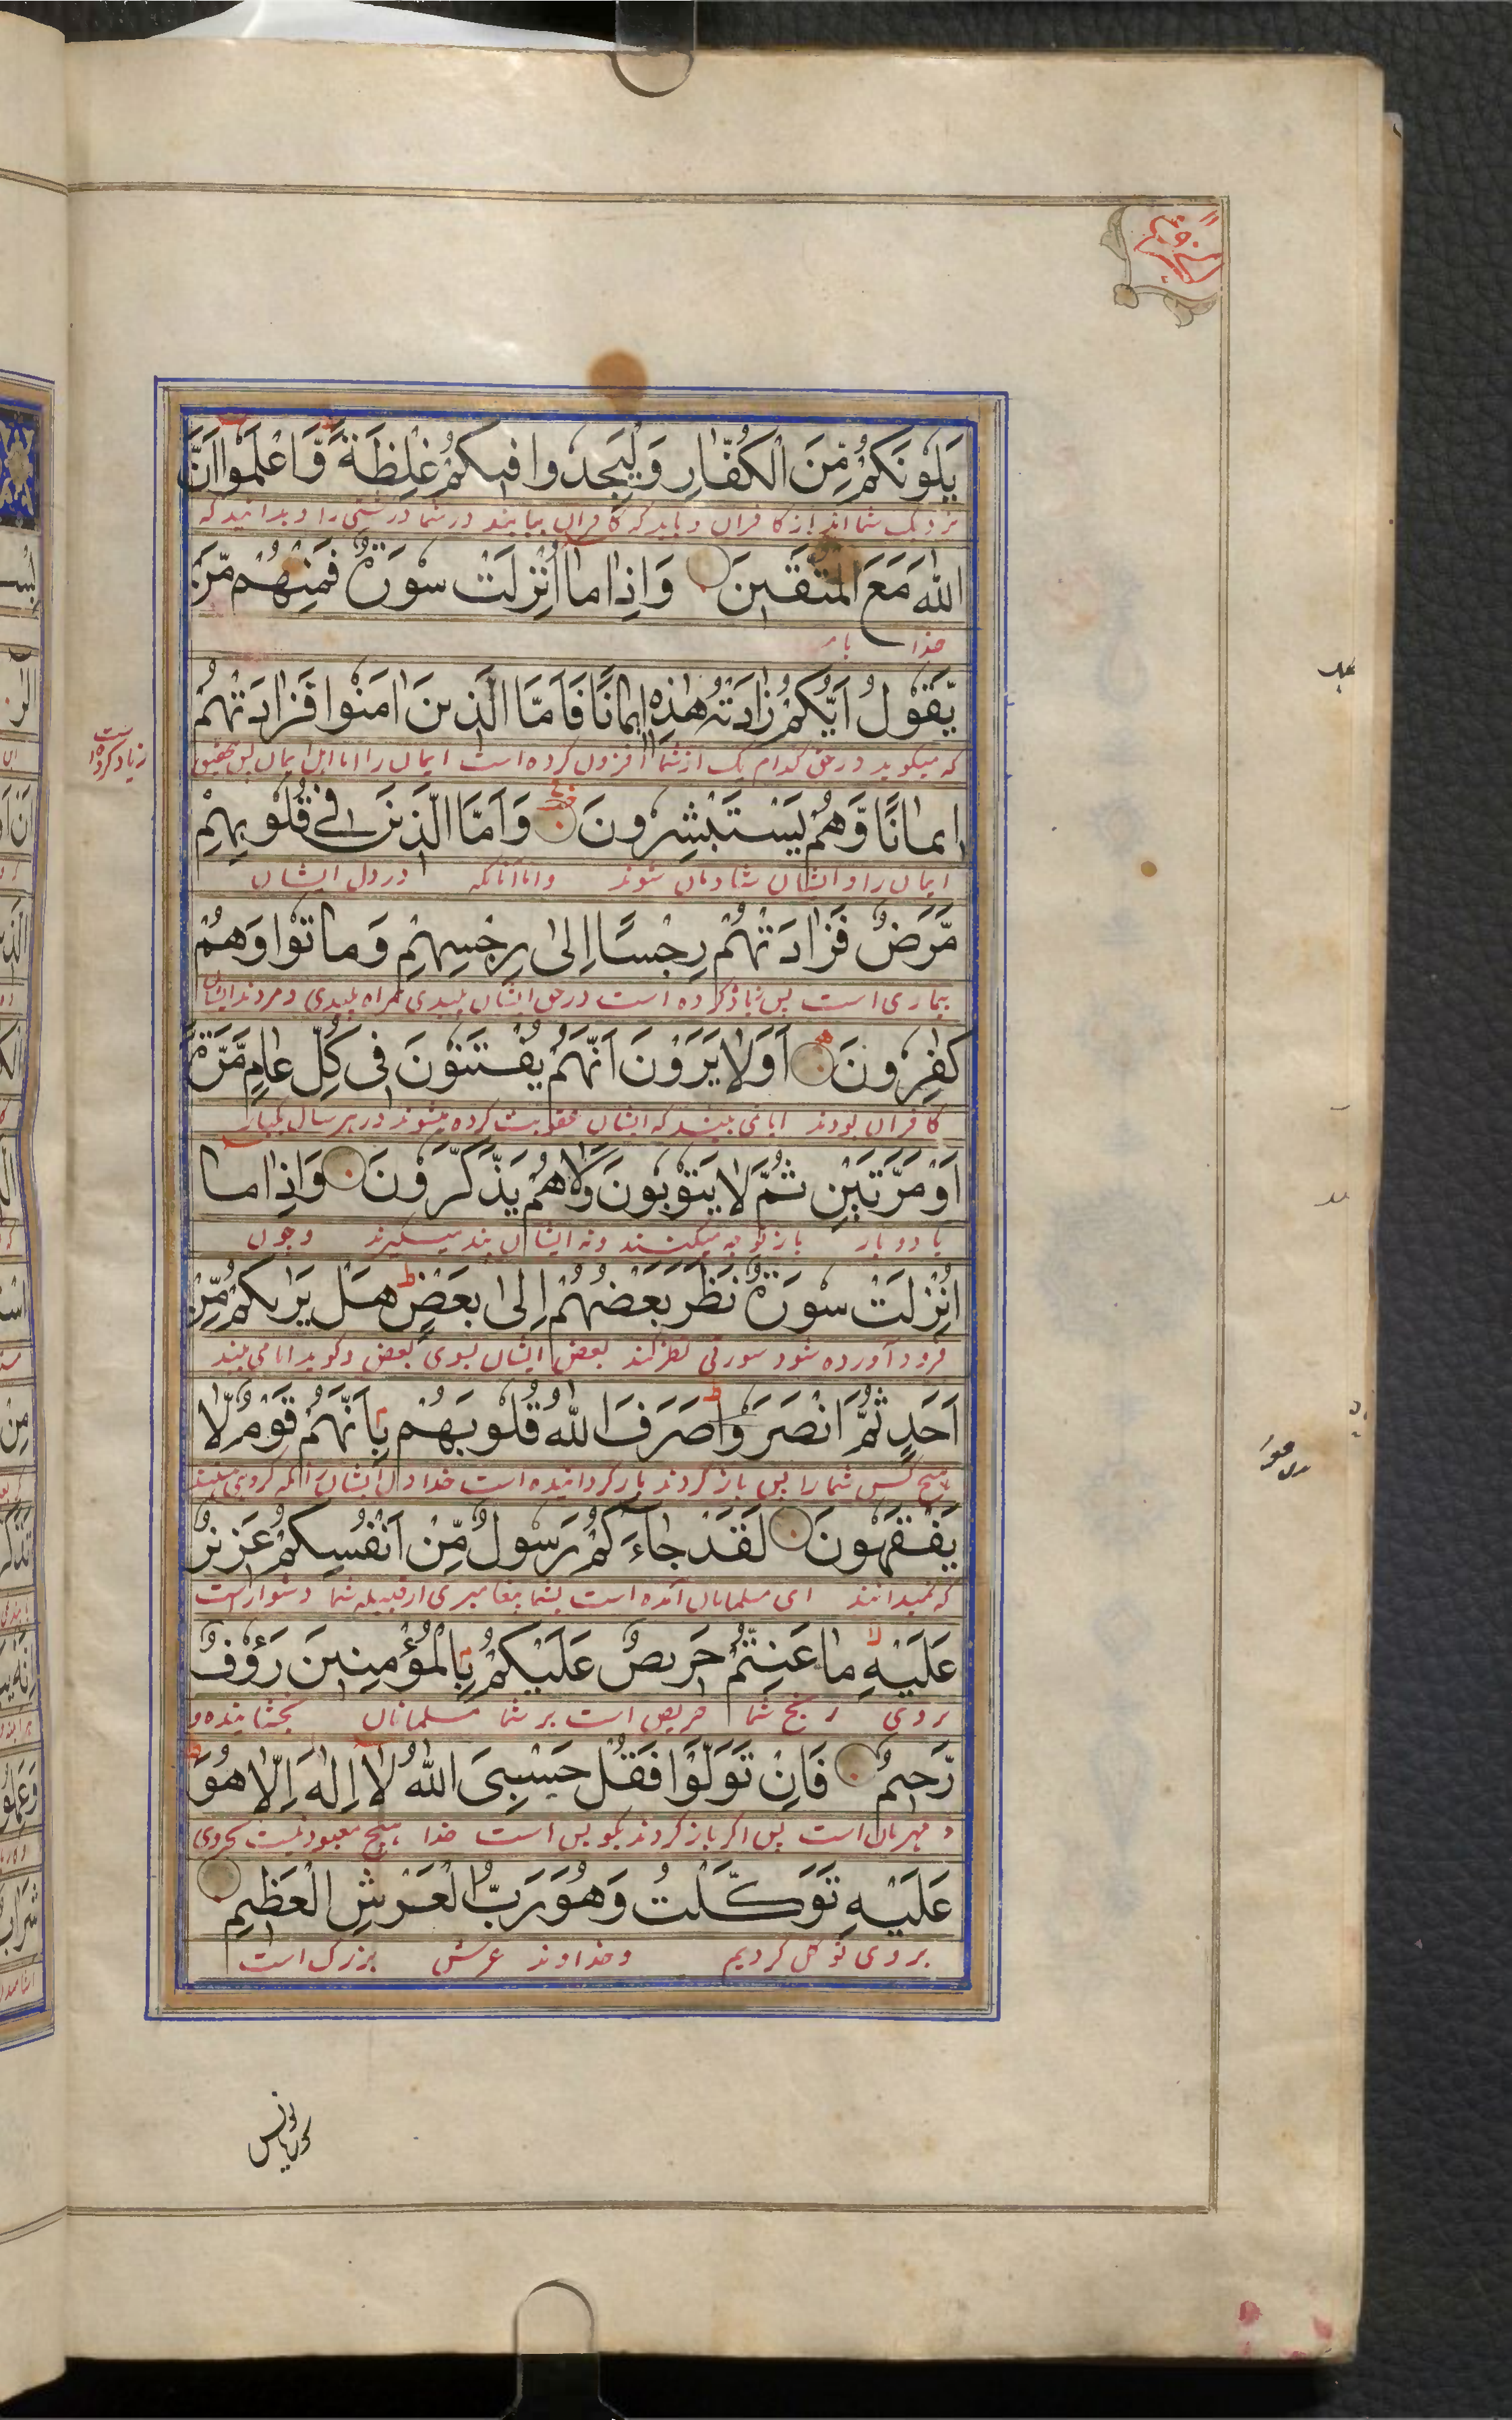 يَلُونَكُمْ مِّنَ الْكُفَّارِ وَلْيَجِدُوا فِيكُمْ غِلْظَةً وَّاعْلَمُوا اَنَّ
نزدیک شما اند از کافران و باید که کافران بیابند در شما درشتی را و بدانید که
اللّٰهَ مَعَ الْمُتَّقِينَ وَاِذَا مَا اُنْزِلَتْ سُورَةٌ فَمِنْهُمْ مَّنْ
خدا با
يَّقُولُ اَيُّكُمْ زَادَتْهُ هٰذِهٖ اِيمَانًا فَاَمَّا الَّذِينَ اٰمَنُوا فَزَادَتْهُمْ
که میکوید در حق کدام یک از شما افزون کرده است ایمان را اما اهل ایمان پس تحقیق
زیاد کرده است
اِيمَانًا وَّهُمْ يَسْتَبْشِرُونَ وَاَمَّا الَّذِينَ فِي قُلُوبِهِمْ
ایمان را و ایشان شادمان شوند واما آنانکه در دل ایشان
مَّرَضٌ فَزَادَتْهُمْ رِجْسًا اِلٰى رِجْسِهِمْ وَمَاتُوا وَهُمْ
بیماری است پس زیاد کرده است در حق ایشان پلیدی همراه پلیدی و مردند ایشان
كٰفِرُونَ اَوَلَا يَرَوْنَ اَنَّهُمْ يُفْتَنُونَ فِى كُلِّ عَامٍ مَّرَّةً
کافران بودند ایا نمی بینند که ایشان عقوبت کرده میشوند در هر سال یکبار
اَوْ مَرَّتَيْنِ ثُمَّ لَا يَتُوبُونَ وَلَا هُمْ يَذَّكَّرُونَ وَاِذَا مَا
یا دو بار باز توبه نمیکنند ونه ایشان پند میگیرند وچون
اُنْزِلَتْ سُورَةٌ نَظَرَ بَعْضُهُمْ اِلٰى بَعْضٍ هَلْ يَرٰىكُمْ مِّنْ
فرود آورده شود سورتی نظر کند بعض ایشان بسوی بعض و کوید ایا می بیند
اَحَدٍ ثُمَّ انْصَرَفُوا صَرَفَ اللّٰهُ قُلُوبَهُمْ بِاَنَّهُمْ قَوْمٌ لَّا
هیچ کس شما را پس باز کردند باز کردانیده است خدا دل ایشان را
يَفْقَهُونَ لَقَدْ جَاءَكُمْ رَسُولٌ مِّنْ اَنْفُسِكُمْ عَزِيزٌ
که نمیدانند ای مسلمانان آمده است بشما پیغامبری از قبیله شما دشوار است
عَلَيْهِ مَا عَنِتُّمْ حَرِيصٌ عَلَيْكُمْ بِالْمُؤْمِنِينَ رَؤُفٌ
بر وی رنج شما حریص است بر شما مسلمانان بخشاینده و
رَّحِيمٌ فَاِنْ تَوَلَّوْا فَقُلْ حَسْبِىَ اللّٰهُ لَا اِلٰهَ اِلَّا هُوَ
و مهربان است پس اکر باز کردند بکو بس است خدا هیچ معبود نیست بجز وی
عَلَيْهِ تَوَكَّلْتُ وَهُوَ رَبُّ الْعَرْشِ الْعَظِيمِ
بر وی توکل کردیم وخداوند عرش بزرک است